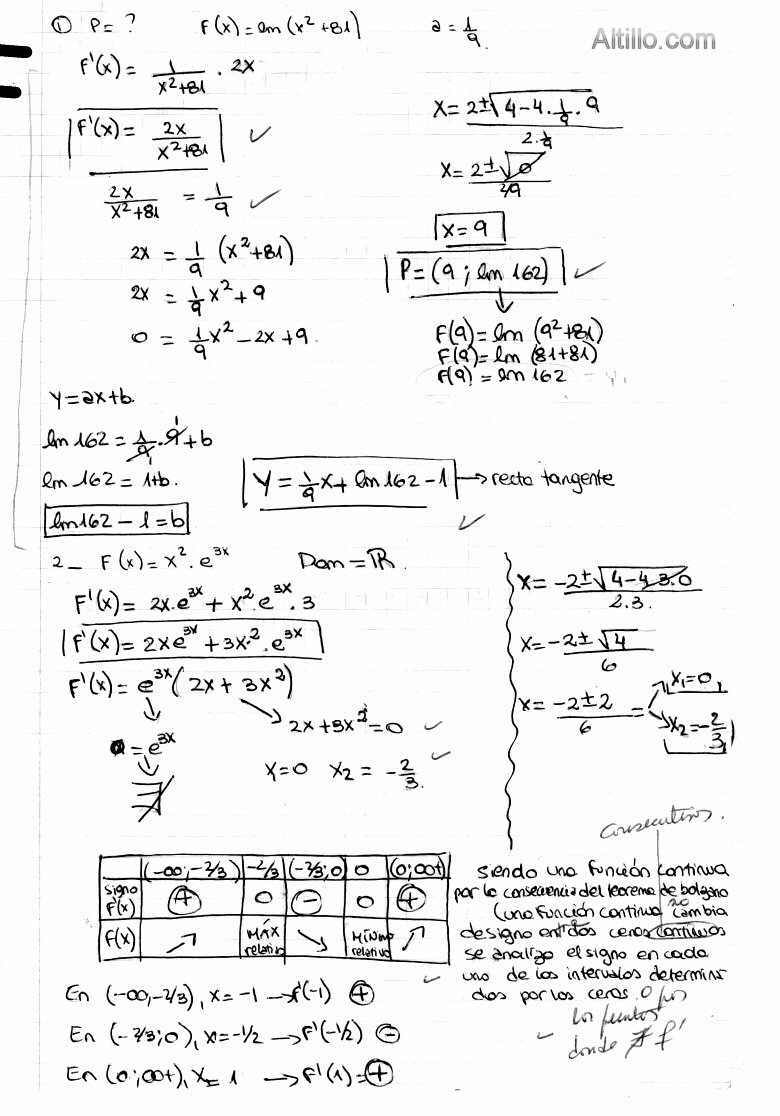 ① P= ? F(x)=lm(x²+81) a=1/9 Altillo.com
F'(x)= 1/(x²+81) . 2x
F'(x)= 2x/(x²+81)
2x/(x²+81) = 1/9
2x = 1/9 (x²+81)
2x = 1/9 x² + 9
0 = 1/9 x² - 2x + 9.
x= (2±√(4-4.1/9.9))/(2.1/9)
x= (2±√0)/(2/9)
x=9
P=(9; lm 162)
F(9)=lm (9²+81)
F(9)=lm (81+81)
F(9)=lm 162
Y=ax+b.
lm 162 = 1/9.9+b
lm 162 = 1+b.
lm162-1=b
Y= 1/9 x + lm 162-1 → recta tangente
2_ F(x)=x².e^3x Dom=ℝ.
F'(x)= 2x.e^3x + x².e^3x.3
F'(x)= 2xe^3x + 3x².e^3x
F'(x)= e^3x (2x+3x²)
0=e^3x
∄
2x+3x²=0
x=0 x₂ = -2/3.
x= (-2±√(4-4.3.0))/(2.3.)
x= (-2±√4)/6
x= (-2±2)/6
x₁=0,
x₂=-2/3
(-∞;-2/3) -2/3 (-2/3;0) 0 (0;∞+)
signo F'(x) + 0 - 0 +
F(x) ↗ MÁX relativo ↘ MÍNIMO relativo ↗
consecutivos.
Siendo una función continua
por la consecuencia del teorema de bolzano
(una función continua no cambia
de signo entre dos ceros continuos
se analiza el signo en cada
uno de los intervalos determina
dos por los ceros. o por
los puntos
donde ∄ f'
En (-∞,-2/3), x=-1 → f'(-1) ⊕
En (-2/3;0), x=-1/2 → F'(-1/2) ⊖
En (0;∞+), x=1 → F'(1)=⊕